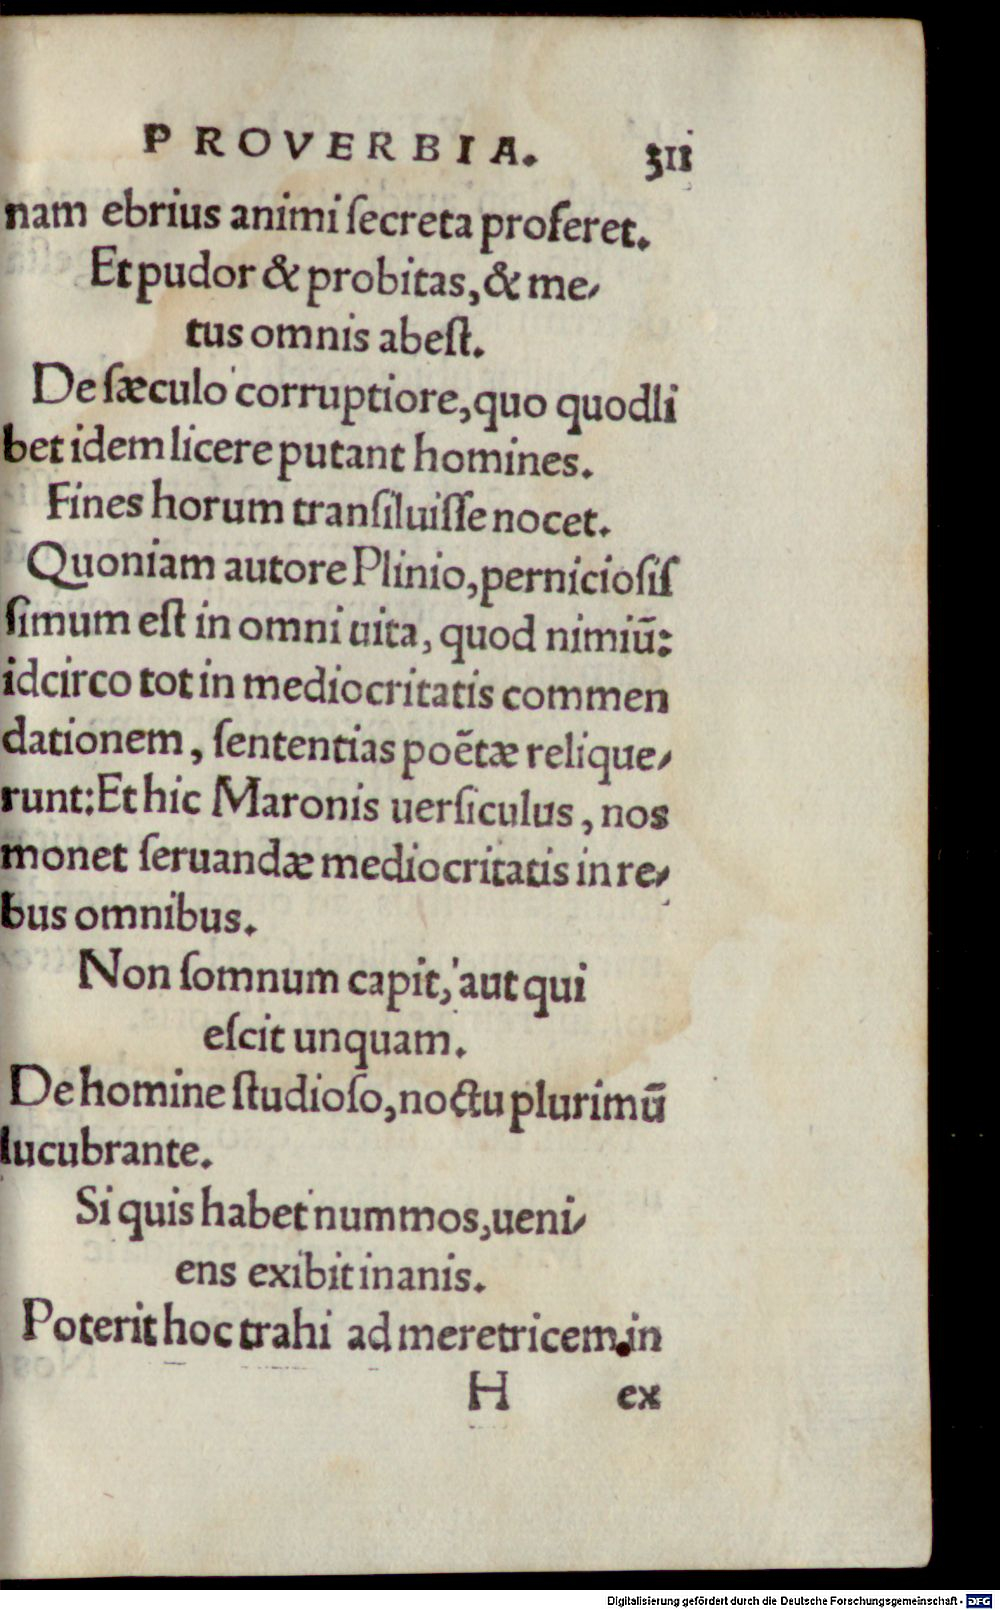 PROVERBIA. 311
nam ebrius animi ſecreta proferet.
Et pudor & probitas, & me-
tus omnis abeſt.
De ſæculo corruptiore, quo quodli
bet idem licere putant homines.
Fines horum tranſiluiſſe nocet.
Quoniam autore Plinio, pernicioſiſ
ſimum eſt in omni uita, quod nimiū:
idcirco tot in mediocritatis commen
dationem, ſententias poëtæ relique-
runt: Et hic Maronis uerſiculus, nos
monet ſeruandæ mediocritatis in re-
bus omnibus.
Non ſomnum capit, aut qui
eſcit unquam.
De homine ſtudioſo, noctu plurimū
lucubrante.
Si quis habet nummos, ueni-
ens exibit inanis.
Poterit hoc trahi ad meretricem. in
H ex
Digitalisierung gefördert durch die Deutsche Forschungsgemeinschaft - DFG